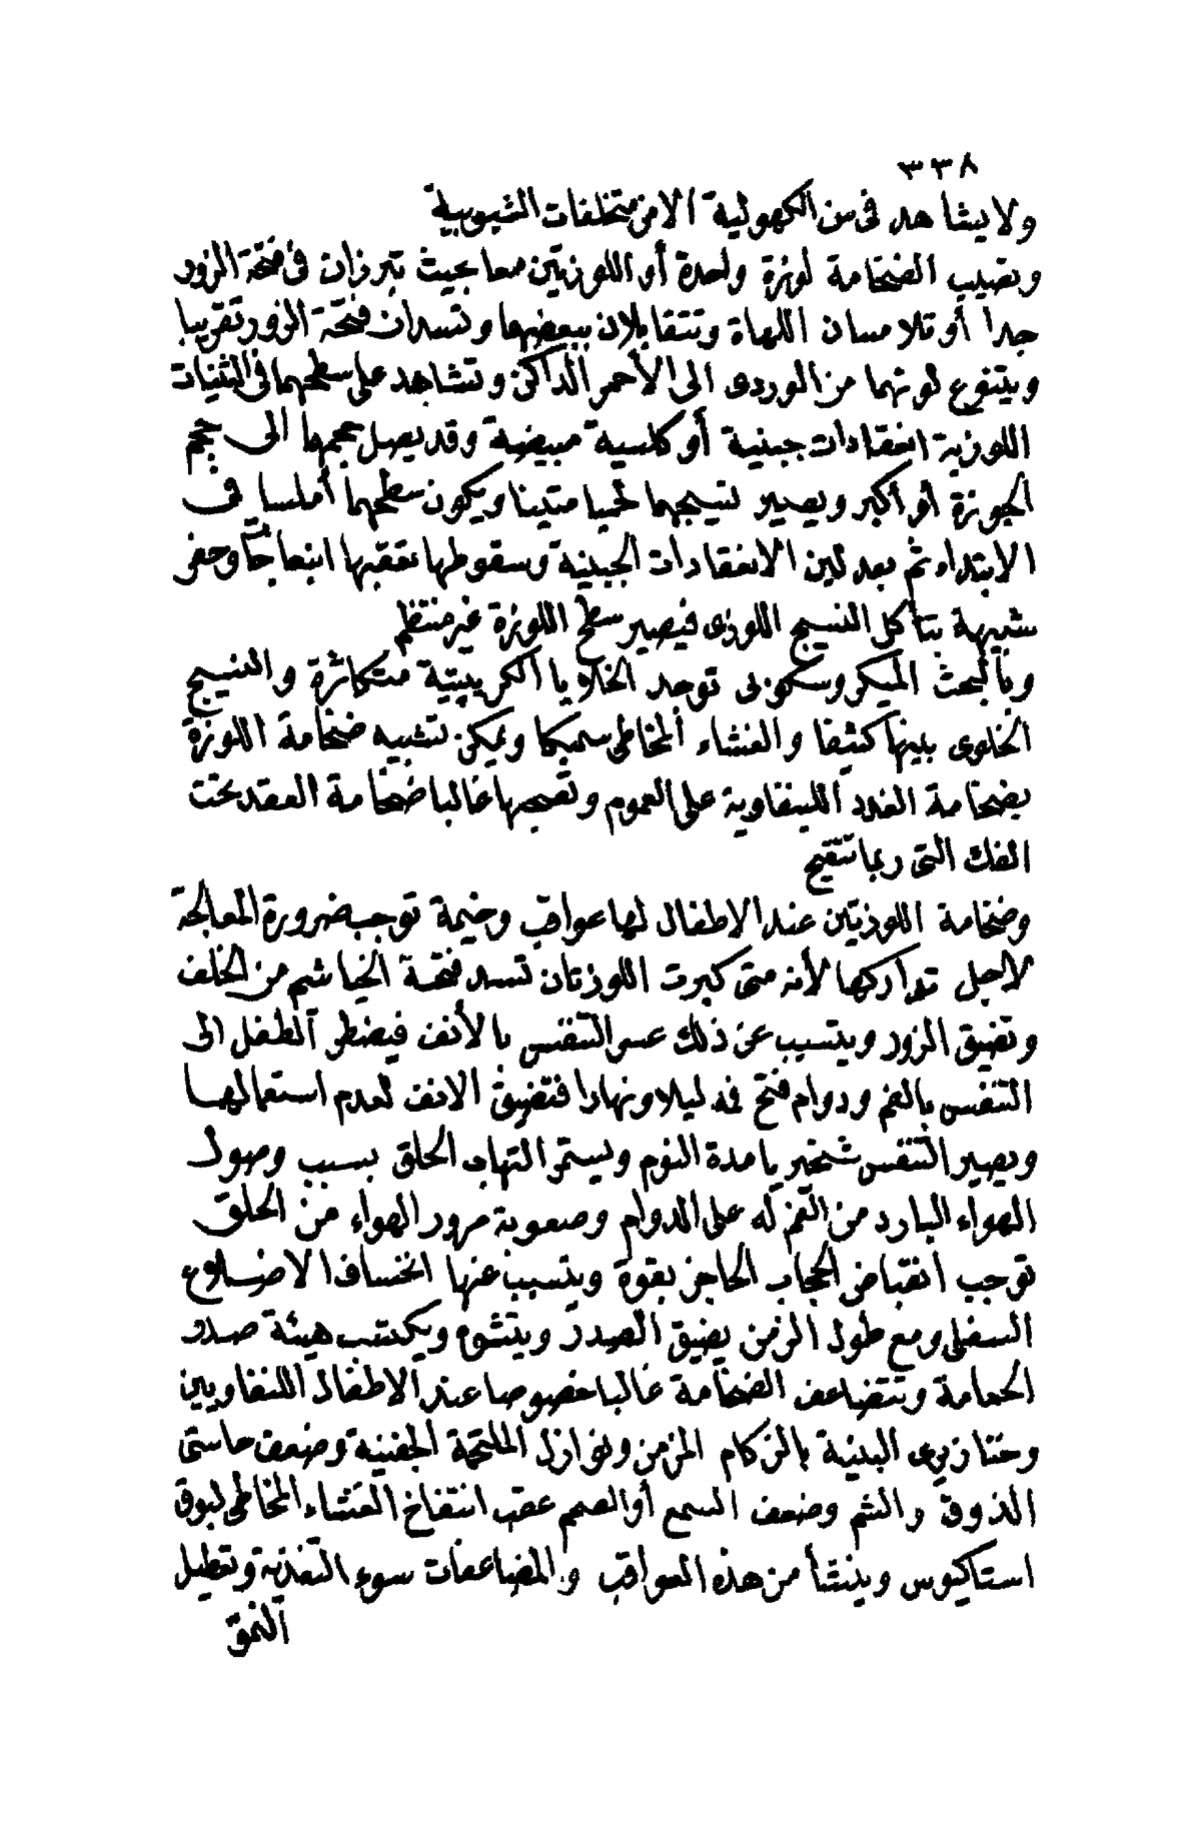 ٣٣٨
ولا يشاهد فى سن الكهولية الا من متخلفات الشيوبية
وتصيب الضخامة لوزة واحدة أو اللوزتين معا بحيث تبرزان فى فتحة الزور
جدا أو تلامسان اللهاة وتتقابلان ببعضهما وتسدان فتحة الزور تقريبا
ويتنوع لونهما من الوردى الى الأحمر الداكن وتشاهد على سطحهما فى الثنيات
اللوزية انعقادات جبنية أو كلسية مبيضة وقد يصل حجمها الى حجم
الجوزة أو أكبر ويصير نسيجهما لحميا متينا ويكون سطحهما أملسا فى
الابتداء ثم بعد لين الانعقادات الجبنية وسقوطها تعقبها انبعاجات وحفر
شبيهة بتآكل النسيج اللوزى فيصير سطح اللوزة غير منتظم
وبالبحث الميكروسكوبى توجد الخلايا الكريبتية متكاثرة والنسيج
الخلوى بينها كثيفا والغشاء المخاطى سميكا ويمكن تشبيه ضخامة اللوزة
بضخامة الغدد اللينفاوية على العموم وتصحبها غالبا ضخامة العقد تحت
الفك التى ربما تتقيح
وضخامة اللوزتين عند الاطفال لها عواقب وخيمة توجب ضرورة المعالجة
لاجل تداركها لأنه متى كبرت اللوزتان تسد فتحة الخياشيم من الخلف
وتضيق الزور ويتسبب عن ذلك عسر التنفس بالأنف فيضطر الطفل الى
التنفس بالفم ودوام فتح فه ليلا ونهارا فتضيق الانف لعدم استعمالها
ويصير التنفس شخيريا مدة النوم ويستمر التهاب الحلق بسبب وصول
الهواء البارد من الفم له على الدوام وصعوبة مرور الهواء من الحلق
توجب انقباض الحجاب الحاجز بقوة ويتسبب عنها انخساف الاضلاع
السفلى ومع طول الزمن يضيق الصدر ويتشوه ويكتسب هيئة صدر
الحمامة وتتضاعف الضخامة غالبا خصوصا عند الاطفال اللنفاويين
وخنازيرى البنية بالزكام المزمن ونوازل الملتحمة الجفنية وضعف حاستى
الذوق والشم وضعف السمع أو الصمم عقب انتفاخ الغشاء المخاطى لبوق
استاكيوس وينشأ من هذه العواقب والمضاعفات سوء التغذية وتعطيل
النمو